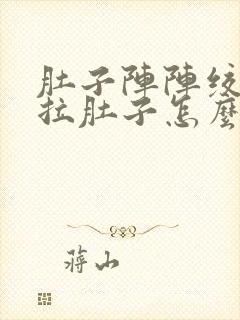 肚子陣陣绞
拉肚子怎麼
蔣山